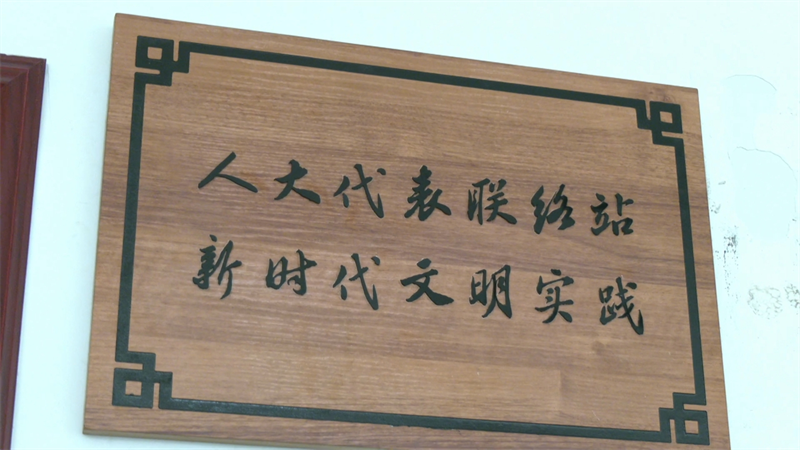 人大代表联络站
新时代文明实践